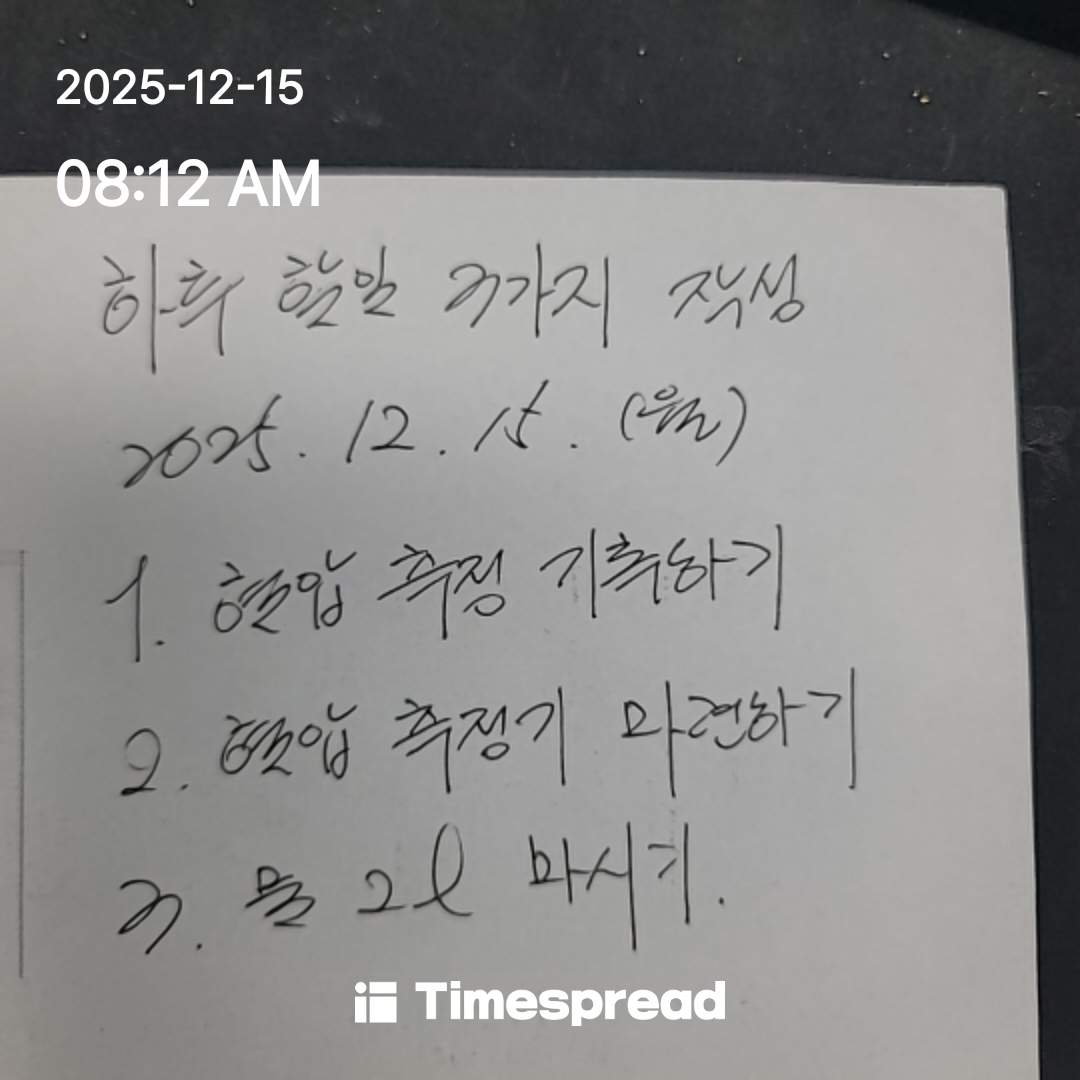 2025-12-15
08:12 AM
하루 할일 3가지 작성
2025. 12. 15. (월)
1. 혈압 측정 기록하기
2. 혈압 측정기 마련하기
3. 물 2l 마시기.
Timespread